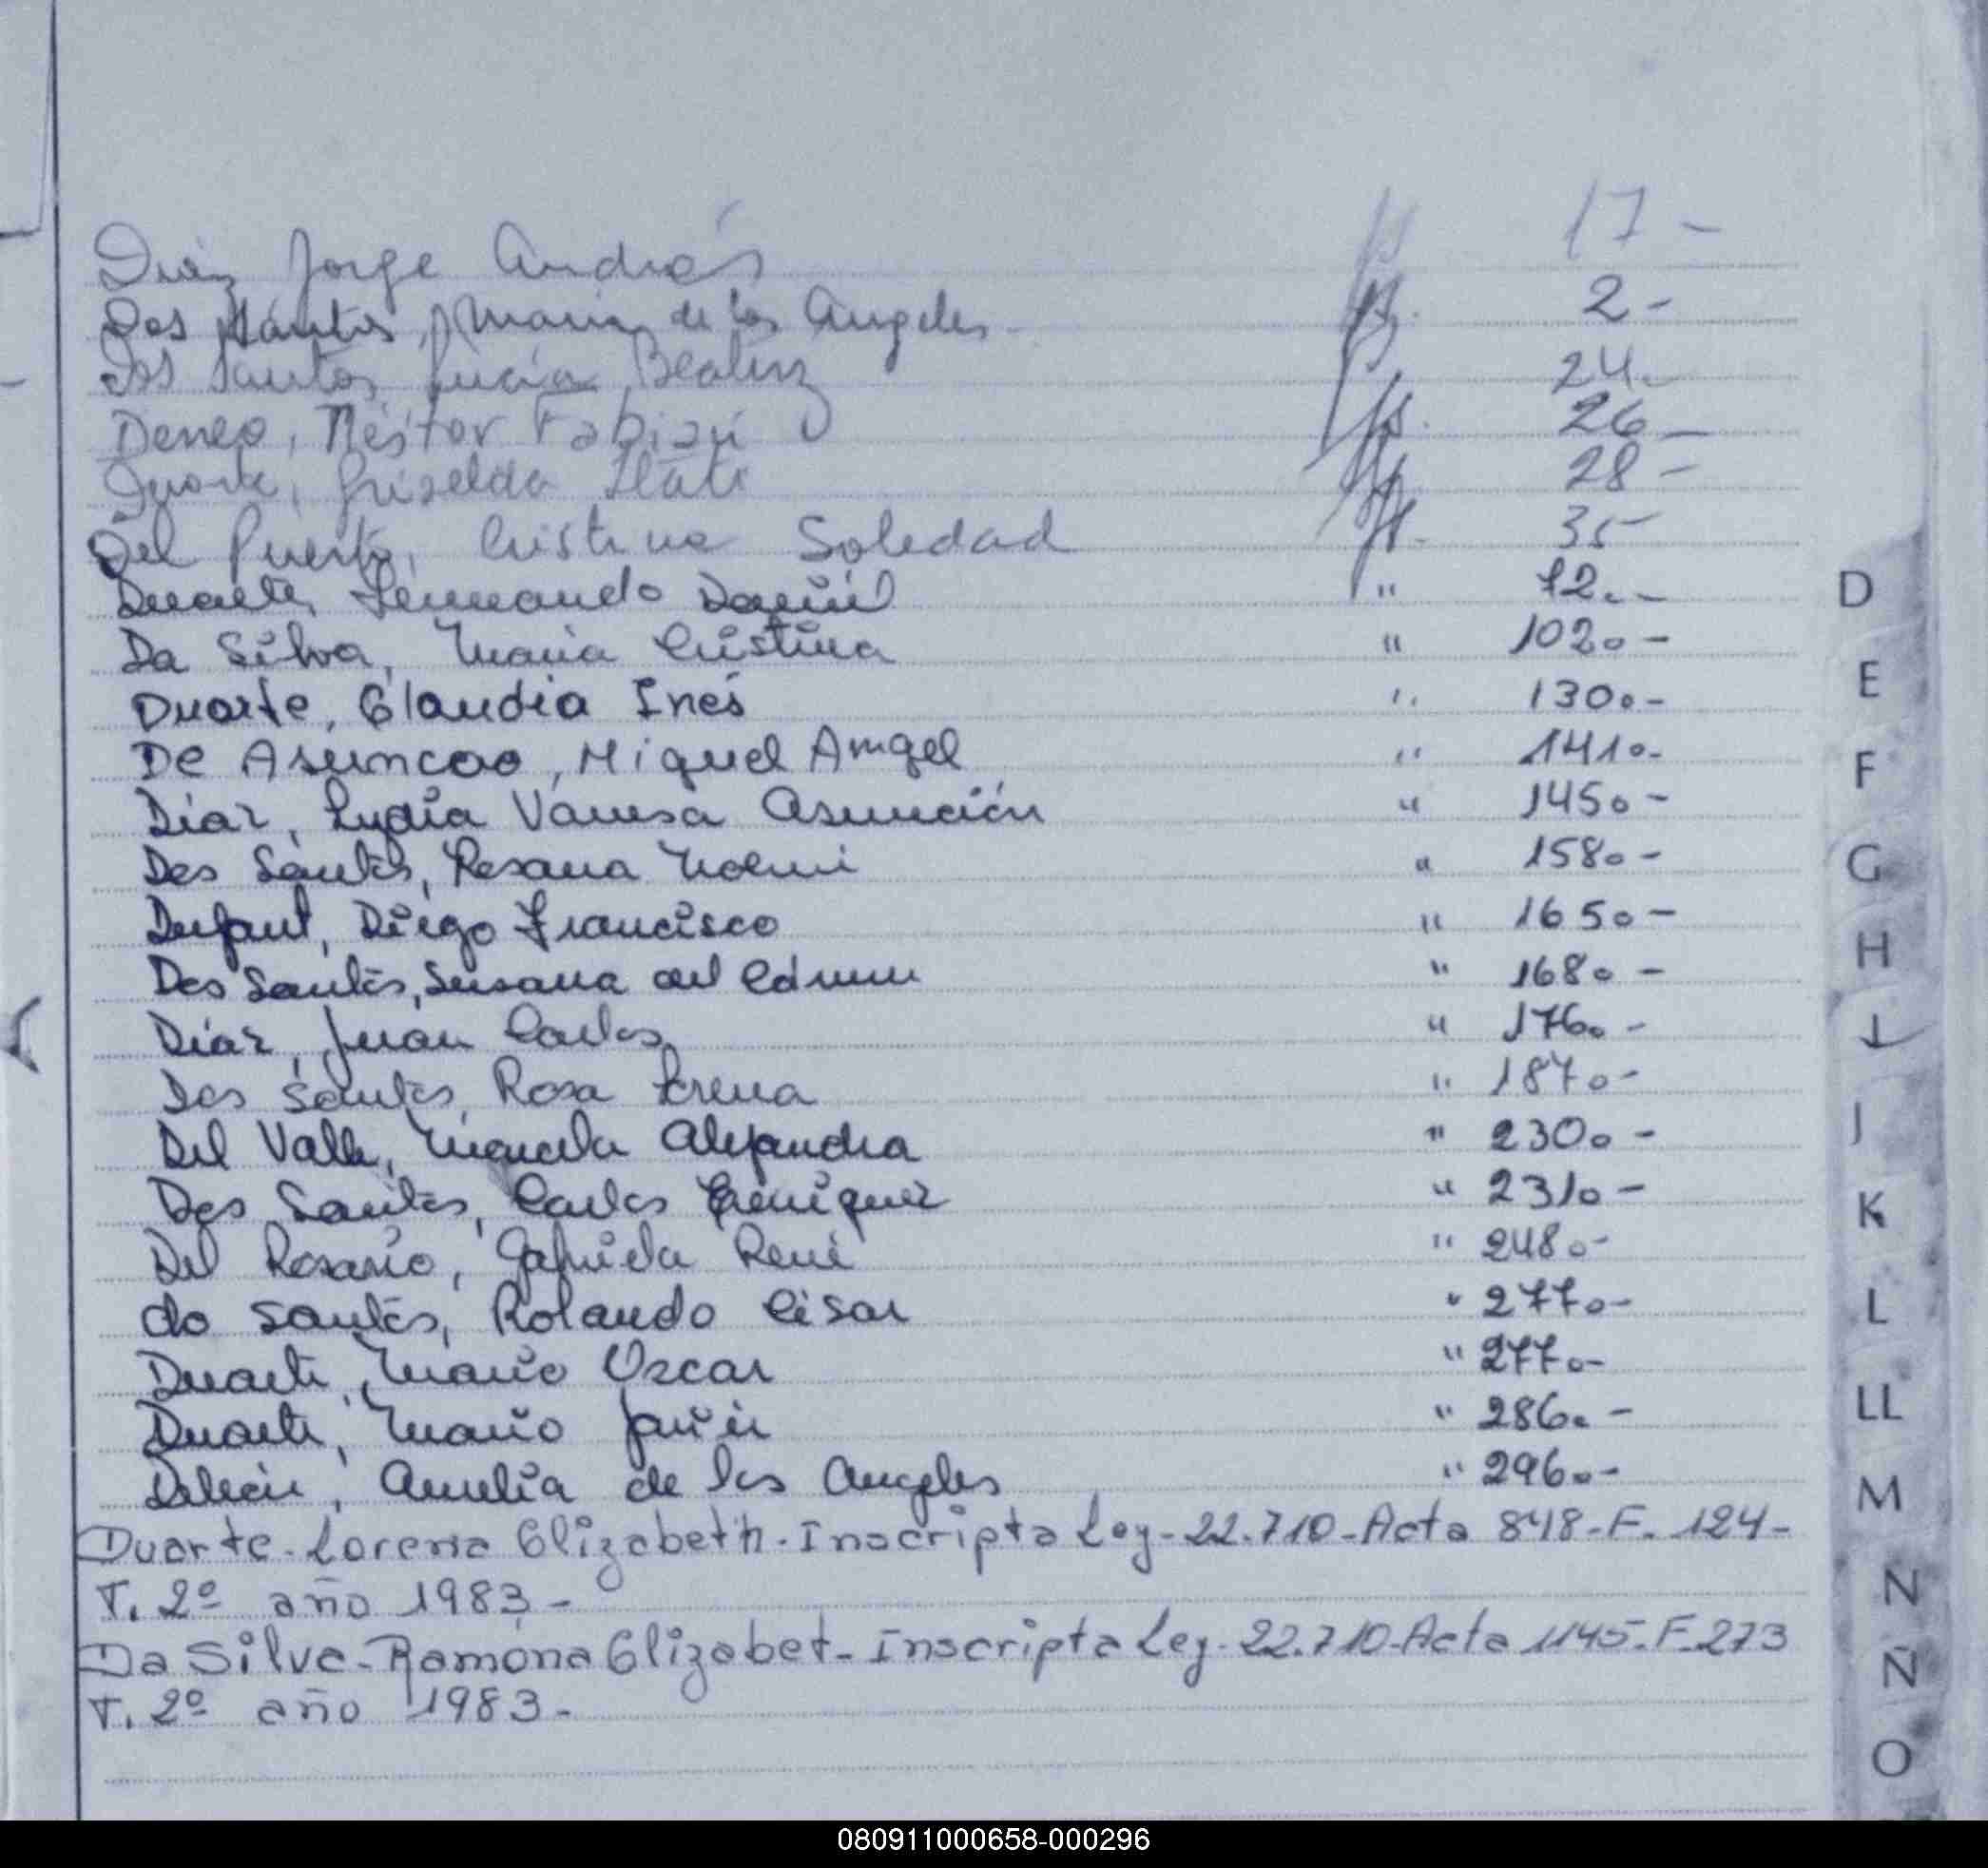 Diaz Jorge Andrés fs 17-
Dos Santos, Maria de los Angeles fs. 2-
Dos Santos, Lucia Beatriz 24-
Denea, Néstor Fabián fs. 26-
Duarte, Griselda Itati fs 28-
Del Puerto, Cristina Soledad fs. 35-
Duarte, Fernando Daniel " 72.-
Da Silva, Maria Cristina " 102.-
Duarte, Claudia Inés " 130.-
De Asuncao, Miguel Angel " 141.-
Díaz, Lydia Vanesa Asunción " 145.-
Dos Santos, Rosana Noemi " 158.-
Dufaut, Diego Francisco " 165.-
Dos Santos, Susana del Cármen " 168.-
Díaz, Juan Carlos " 176.-
Dos Santos, Rosa Lorena " 187.-
Del Valle, Marcela Alejandra " 230.-
Dos Santos, Carlos Enrique " 231.-
Del Rosario, Gabriela René " 248.-
do Santos, Rolando César " 277.-
Duarte, Mario Oscar " 277.-
Duarte, Mario Javier " 286.-
Amelia de los Angeles " 296.-
Duarte-Lorena Elizabeth-Inscripta Ley-22.710-Acta 848-F. 124-
T. 2º año 1983-
Da Silva-Ramona Elizabet-Inscripta Ley-22.710-Acta 1145-F.273
T. 2º año 1983-
D
E
F
G
H
I
J
K
L
LL
M
N
Ñ
O
080911000658-000296